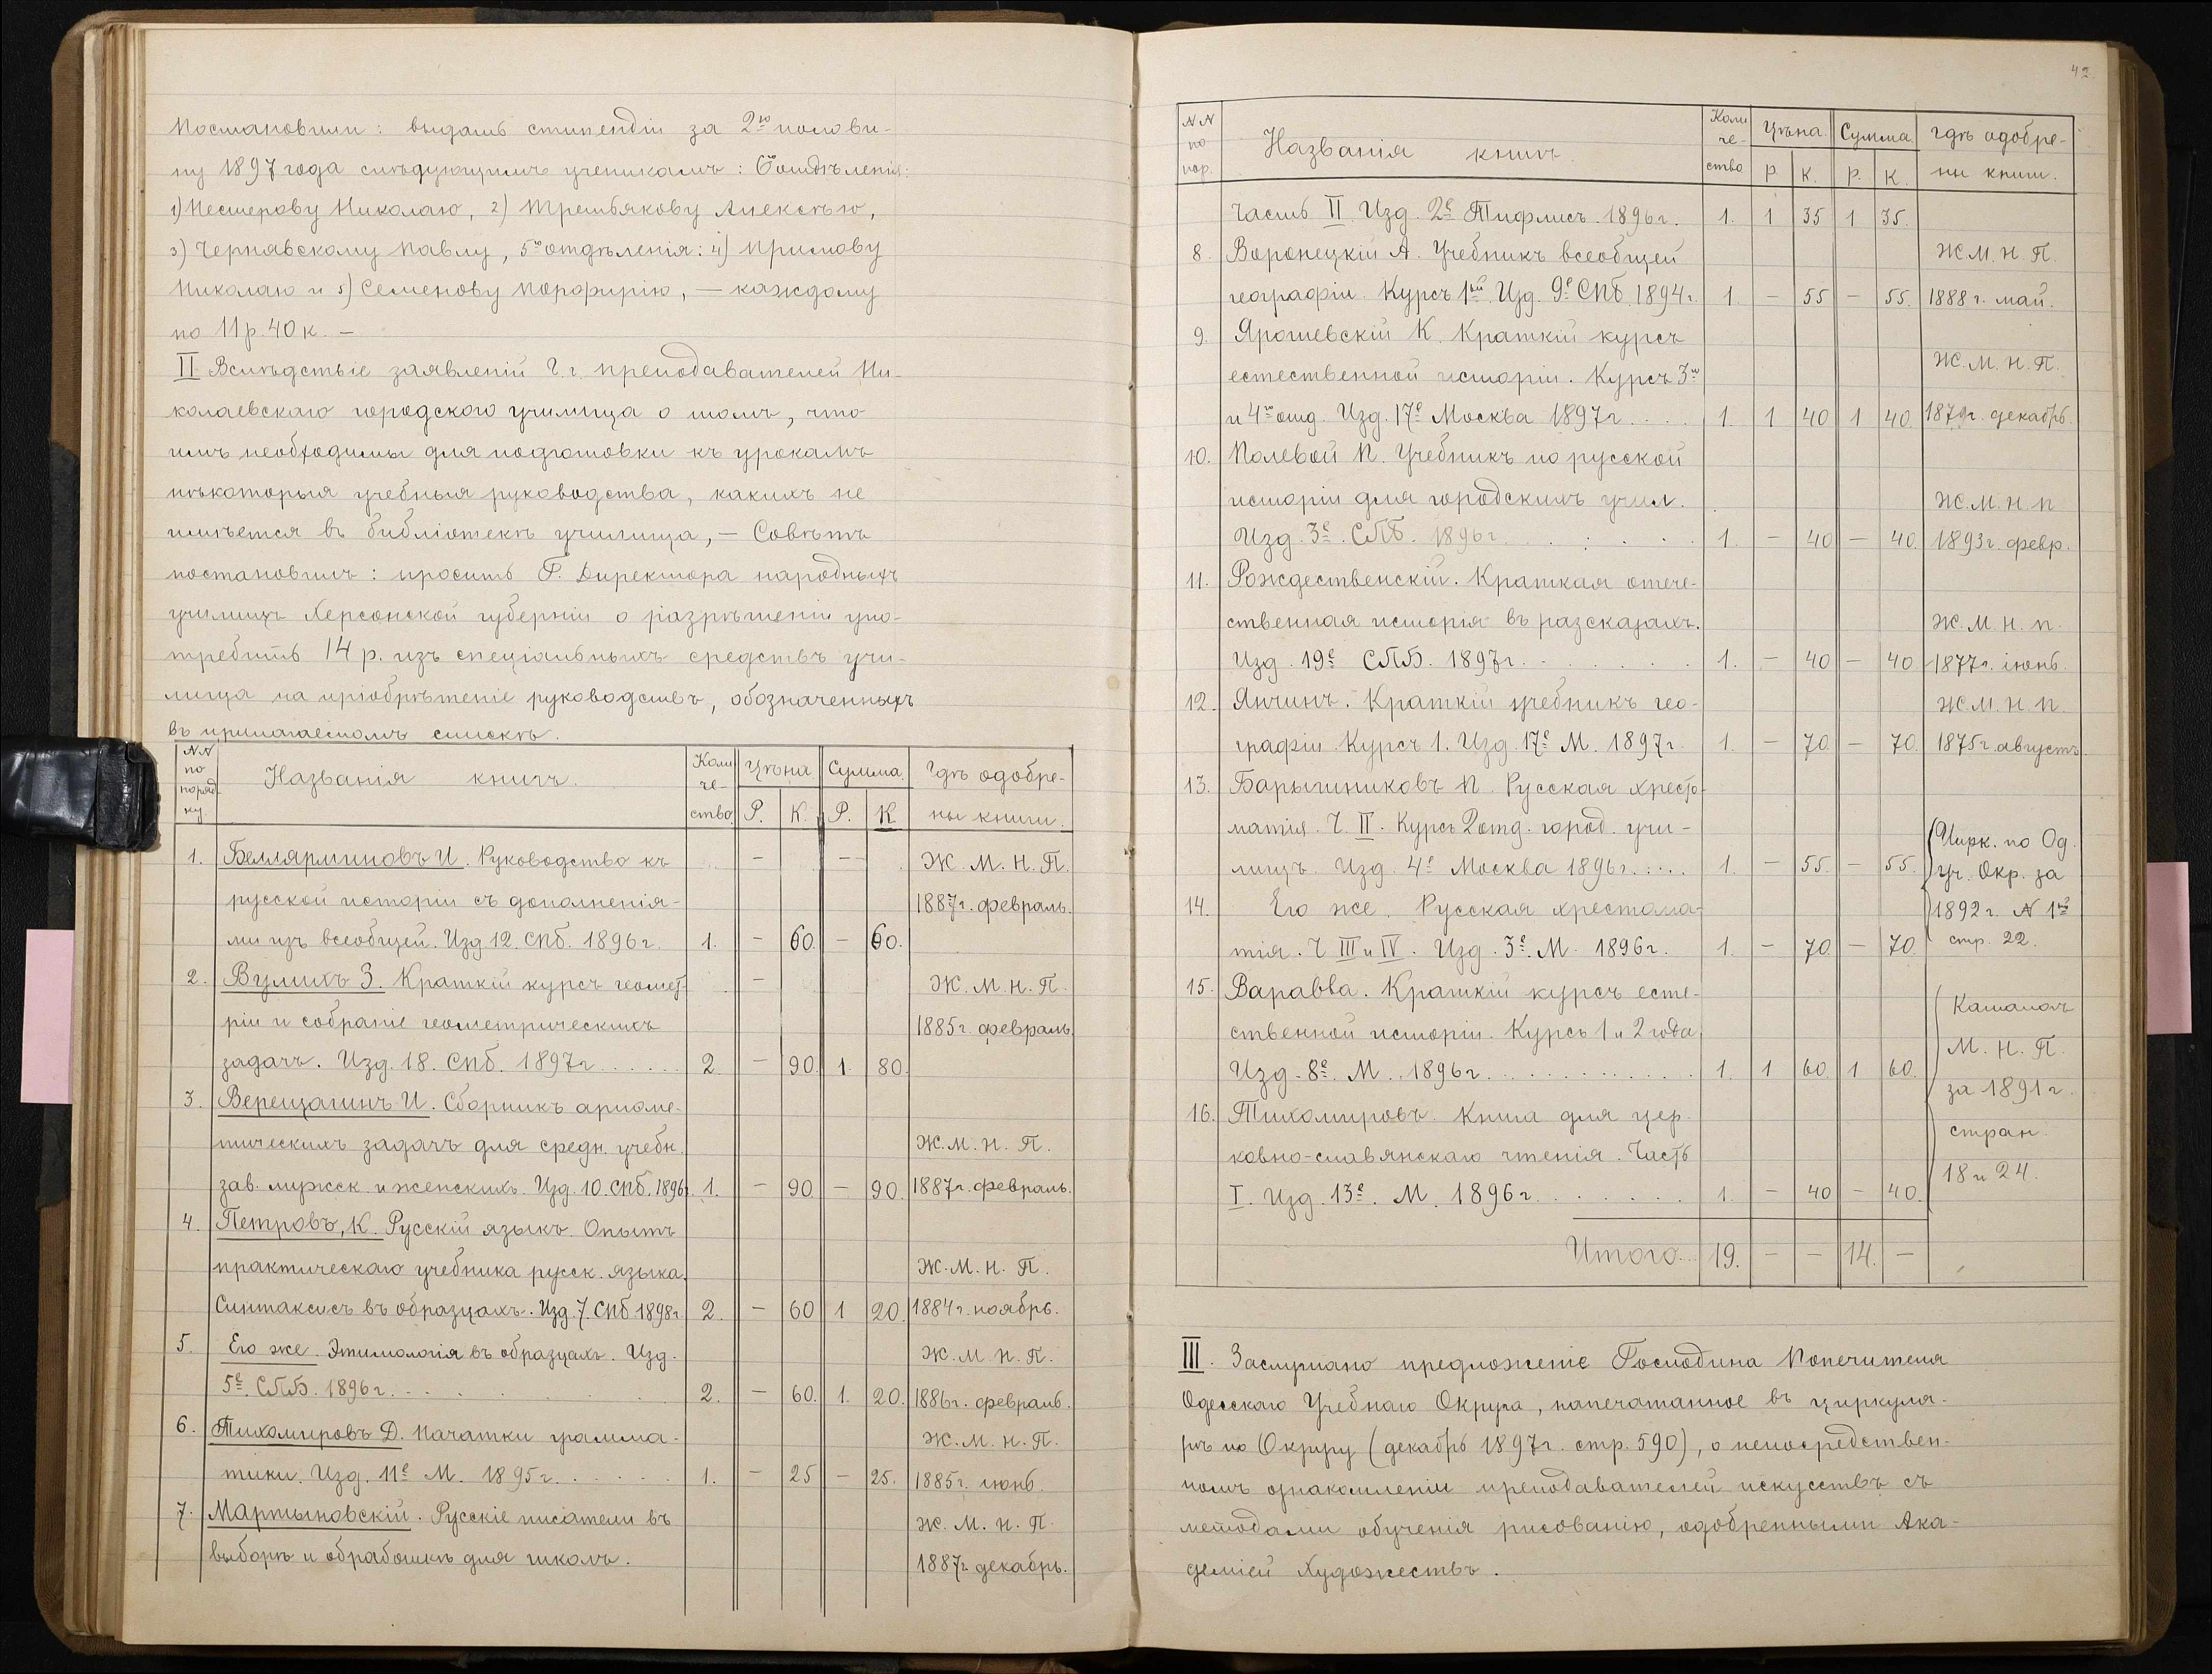 Постановили: выдать стипендіи за 2ю полови-
ну 1897 года слѣдующимъ ученикамъ: 6 отдѣленія:
1) Нестерову Николаю, 2) Третьякову Алексѣю,
3) Чернявскому Павлу, 5го отдѣленія: 4)
Николаю и 5) Семенову Порфирію, — каждому
по 11 р. 40 к. —
II Вслѣдствіе заявленій Г.г. преподавателей Ни-
колаевскаго городского училища о томъ, что
имъ необходимы для подготовки къ урокамъ
нѣкоторыя учебныя руководства, какихъ не
имѣется въ библіотекѣ училища, — Совѣтъ
постановилъ: просить Г. Директора народныхъ
училищъ Херсонской губерніи о разрѣшеніи упо-
требить 14 р. изъ спеціальныхъ средствъ учи-
лища на пріобрѣтеніе руководствъ, обозначенныхъ
въ прилагаемомъ спискѣ.
NN по порядку. Названія книгъ. Количество. Цѣна Р. К. Сумма. Р. К. Гдѣ одобре-
ны книги.
1. Беллярминовъ И. Руководство къ — — Ж. М. Н. П.
русской исторіи съ дополненія- 1887г. февраль.
ми изъ всеобщей. Изд 12. Спб. 1896г. 1. — 60. — 60.
2. Вулихъ З. Краткій курсъ геомет- — Ж. М. Н. П.
ріи и собраніе геометрическихъ 1885г. февраль.
задачъ. Изд. 18. Спб. 1897г...... 2. — 90. 1. 80.
3. Верещагинъ И. Сборникъ ариѳме-
тическихъ задачъ для средн. учебн. Ж. М. Н. П.
зав. мужск. и женскихъ. Изд. 10. Спб. 1896. 1. — 90 — 90. 1887г. февраль.
4. Петровъ, К. Русскій языкъ. Опытъ
практическаго учебника русск. языка. Ж. М. Н. П.
Синтаксисъ въ образцахъ. Изд. 7. Спб 1898г. 2. — 60 1 20. 1884г. ноябрь.
5. Его же. Этимологія въ образцахъ. Изд. Ж. М. Н. П.
5е. СПБ. 1896г. 2. — 60. 1. 20. 1886г. февраль.
6. Тихомировъ Д. Начатки грамма- Ж. М. Н. П.
тики. Изд. 11е М. 1895г. 1. — 25 — 25. 1885г. іюнь.
7. Мартыновскій. Русскіе писатели въ Ж. М. Н. П.
выборѣ и обработкѣ для школъ. 1887г декабрь.
42.
NN по пор. Названія книгъ. Количество Цѣна. Р. К. Сумма Р. К. Гдѣ одобре-
ны книги.
Часть II. Изд. 2е Тифлисъ. 1896г. 1. 1 35 1 35.
8. Воронецкій А. Учебникъ всеобщей Ж. М. Н. П.
географіи. Курсъ 1ый. Изд. 9е СПб. 1894г. 1. — 55 — 55. 1888г. май.
9. Ярошевскій К. Краткій курсъ
естественной исторіи. Курсъ 3го Ж. М. Н. П.
и 4го отд. Изд. 17е Москва 1897г.... 1. 1 40 1 40. 1879г. декабрь.
10. Полевой П. Учебникъ по русской
исторіи для городскихъ учил. Ж. М. Н. П
Изд. 3е. СПб. 1896г. 1. — 40 — 40. 1893г. февр.
11. Рождественскій. Краткая отече-
ственная исторія въ разсказахъ. Ж. М. Н. П.
Изд. 19е СПБ. 1897г. 1. — 40 — 40 1877г. іюнь.
12. Янчинъ. Краткій учебникъ гео- Ж. М. Н. П.
графіи. Курсъ 1. Изд. 17е М. 1897г. 1. — 70 — 70. 1875г. августъ.
13. Барышниковъ П. Русская хресто-
матія. Ч. II. Курсъ 2 отд. город. учи- Цирк. по Од.
лищъ. Изд. 4е Москва 1896г..... 1. — 55. — 55. уч. Окр. за
14. Его же. Русская хрестома- 1892г. N 1ый
тія. Ч III и IV. Изд. 3е. М. 1896г. 1. — 70. — 70. стр. 22.
15. Варавва. Краткій курсъ есте- Каталогъ
ственной исторіи. Курсъ 1 и 2 года М. Н. П.
Изд. 8е. М. 1896г. 1. 1 60. 1 60. за 1891г.
16. Тихомировъ. Книга для цер-
ковно-славянскаго чтенія. Часть стран.
I. Изд. 13е. М. 1896г. 1. — 40 — 40. 18 и 24.
Итого... 19. — — 14. —
III. Заслушано предложеніе Господина Попечителя
Одесскаго Учебнаго Округа, напечатанное въ циркуля-
рѣ по Округу (декабрь 1897г. стр. 590), о непосредствен-
номъ ознакомленіи преподавателей искусствъ съ
методами обученія рисованію, одобренными Ака-
деміей Художествъ.